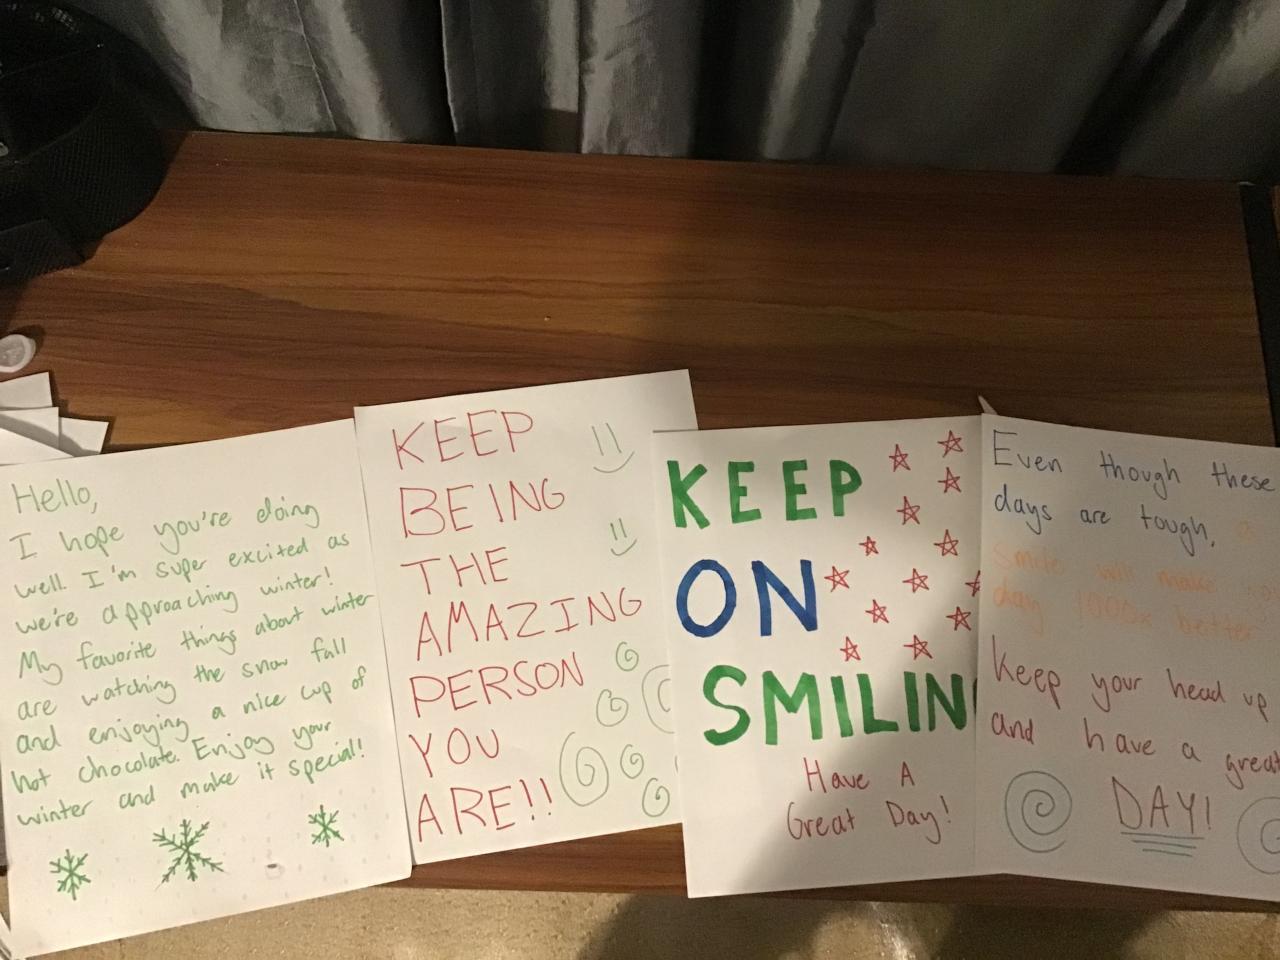 Hello,
I hope you're doing
well. I'm super excited as
we're approaching winter!
My favorite things about winter
are watching the snow fall
and enjoying a nice cup of
hot chocolate. Enjoy your
winter and make it special!
KEEP
BEING
THE
AMAZING
PERSON
YOU
ARE!!
KEEP
ON
SMILIN
Have A
Great Day!
Even though these
days are tough, a
smile will make
day 1000x better
Keep your head up
and have a great
DAY!